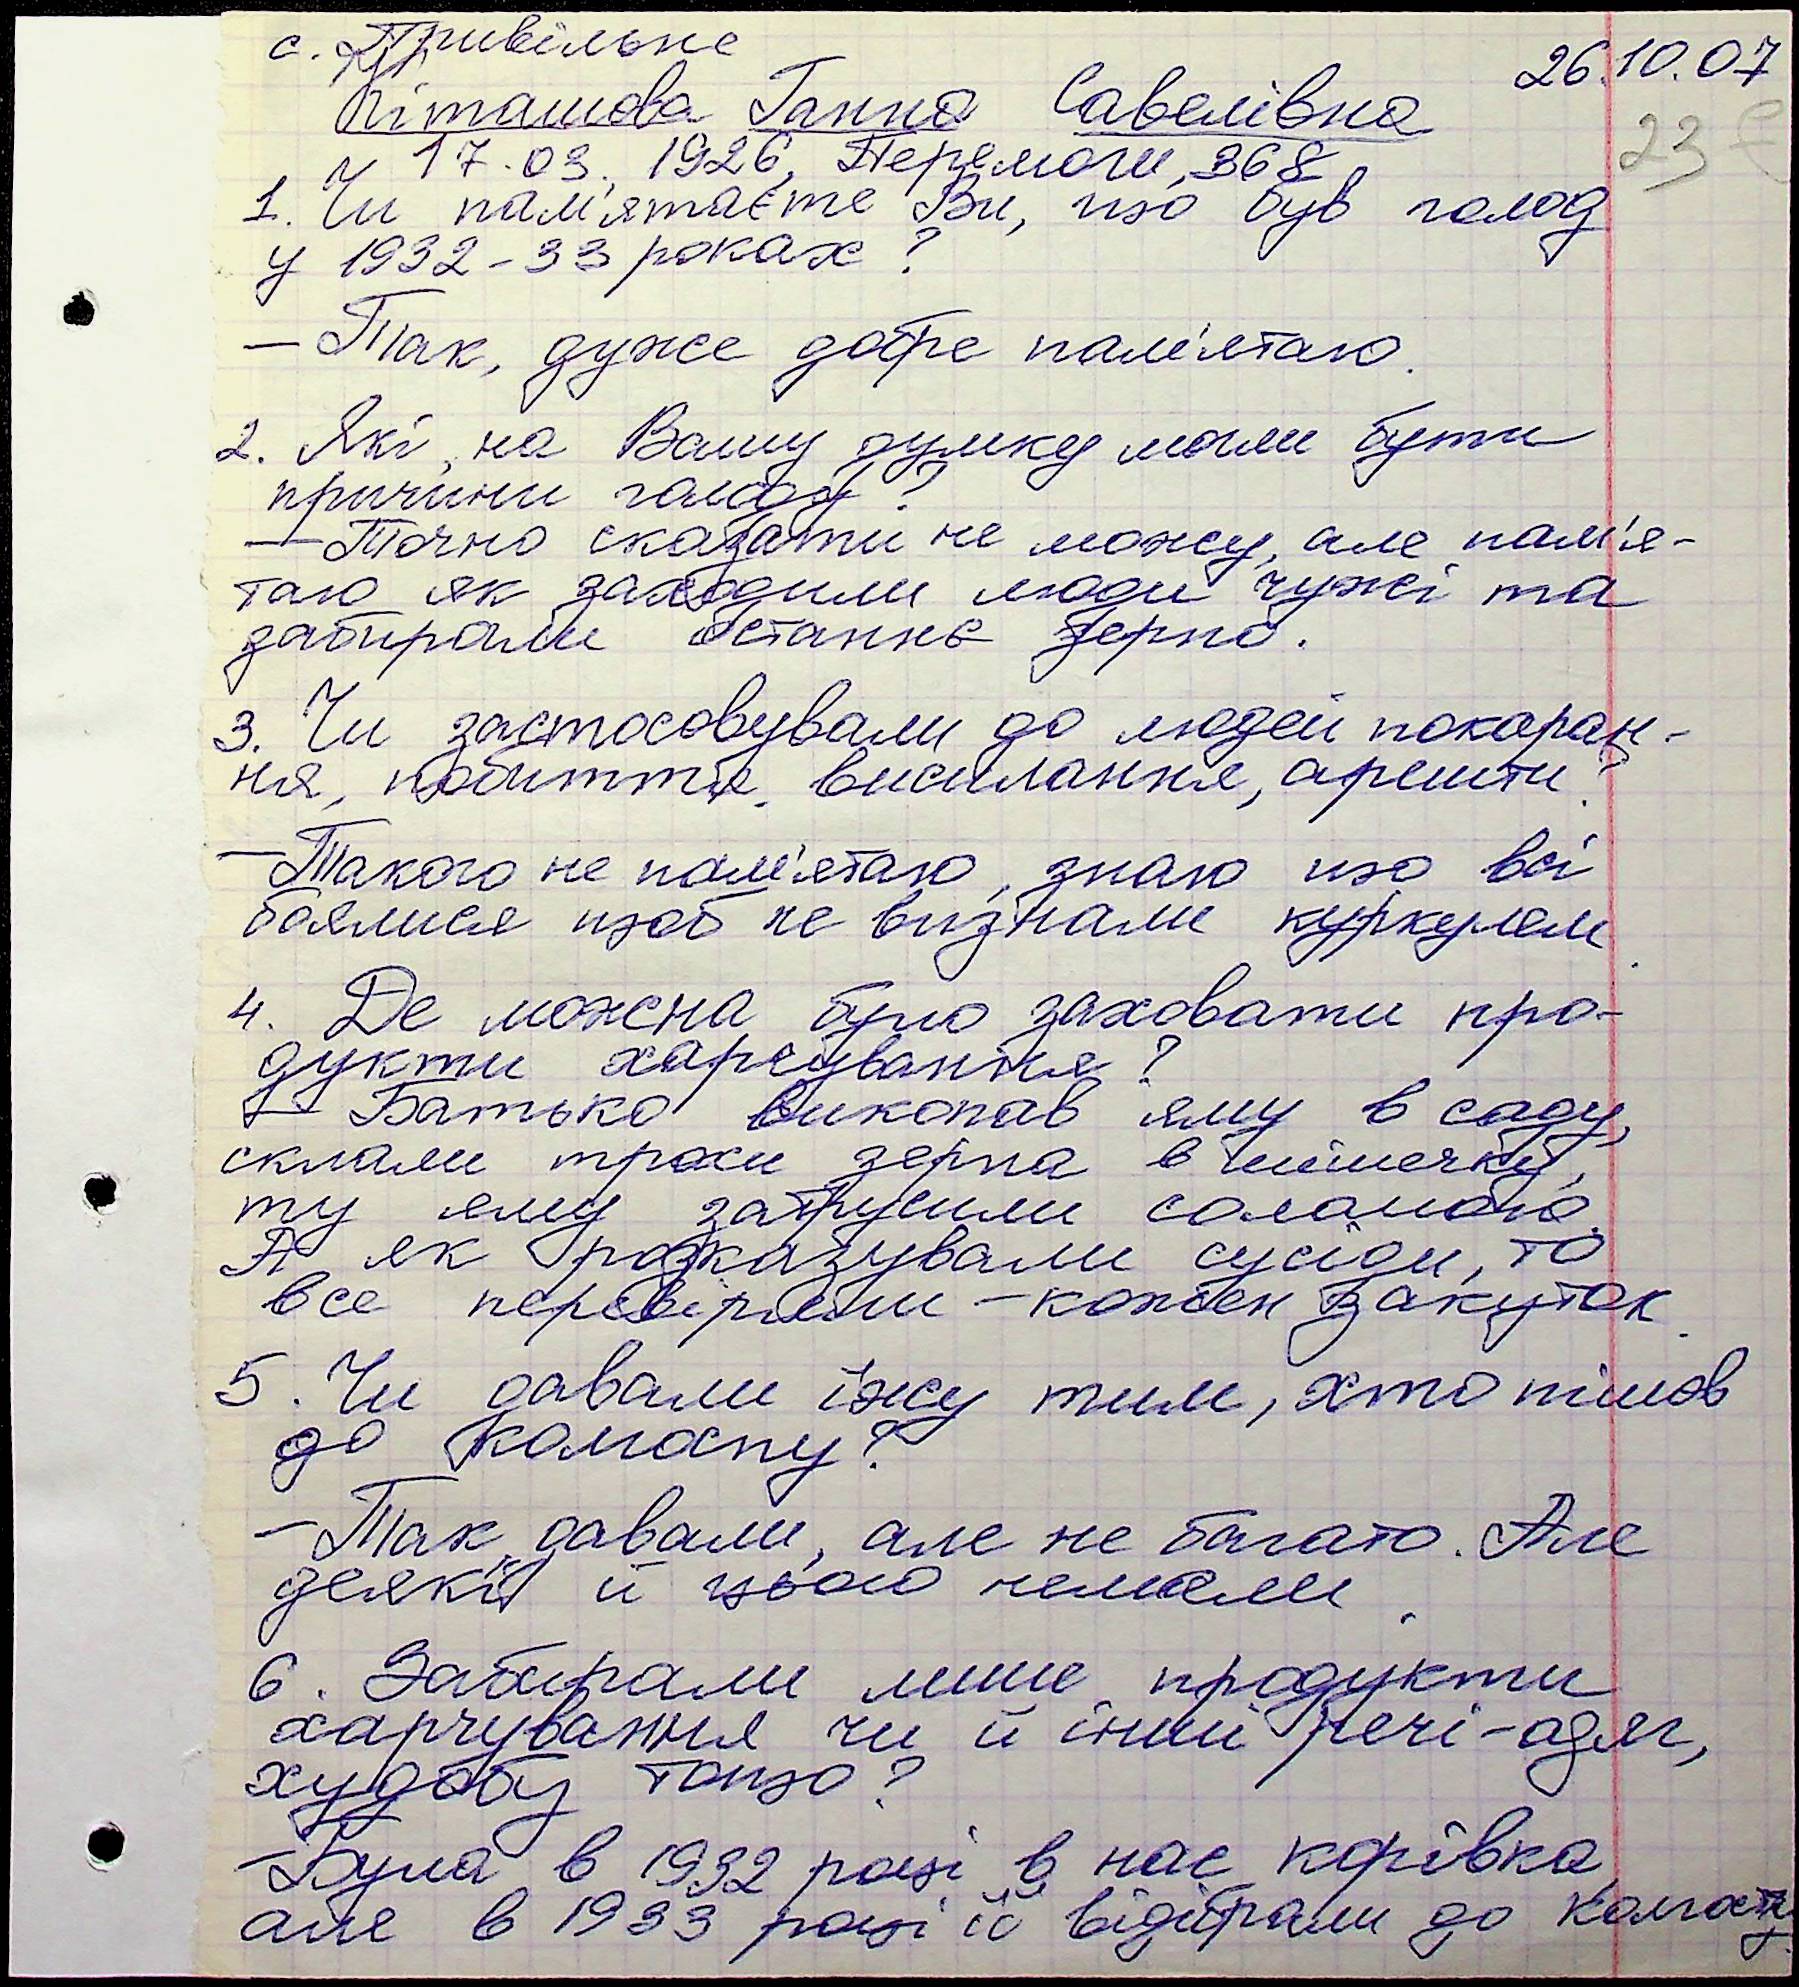 с. Привільне
26.10.07
Піташова Ганна Савелівна
23
17.03.1926, Перемоги, 368
1. Чи пам'ятаєте Ви, що був голод
у 1932-33 роках?
- Так, дуже добре пам'ятаю.
2. Які, на Вашу думку могли бути
причини голоду?
- Точно сказати не можу, але пам'я-
таю як заходили люди чужі та
забирали останнє зерно.
3. Чи застосовували до людей покаран-
ня, побиття, висилання, арешти?
- Такого не пам'ятаю, знаю що всі
боялися щоб не визнали куркулем.
4. Де можна було заховати про-
дукти харчування?
- Батько викопав яму в саду,
склали трохи зерна в мішечку,
ту яму затрусили соломою.
А як розказували сусіди, то
все перевіряли - кожен закуток.
5. Чи давали їжу тим, хто пішов
до колгоспу?
- Так давали, але не багато. Але
деякі й цього немали.
6. Забирали лише продукти
харчування чи й інші речі - одяг,
худобу тощо?
- Була в 1932 році в нас корівка,
але в 1933 році її відібрали до колгоспу.